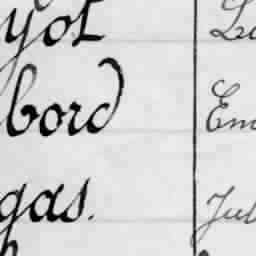 yot Lu
bord Em
gas. Jul